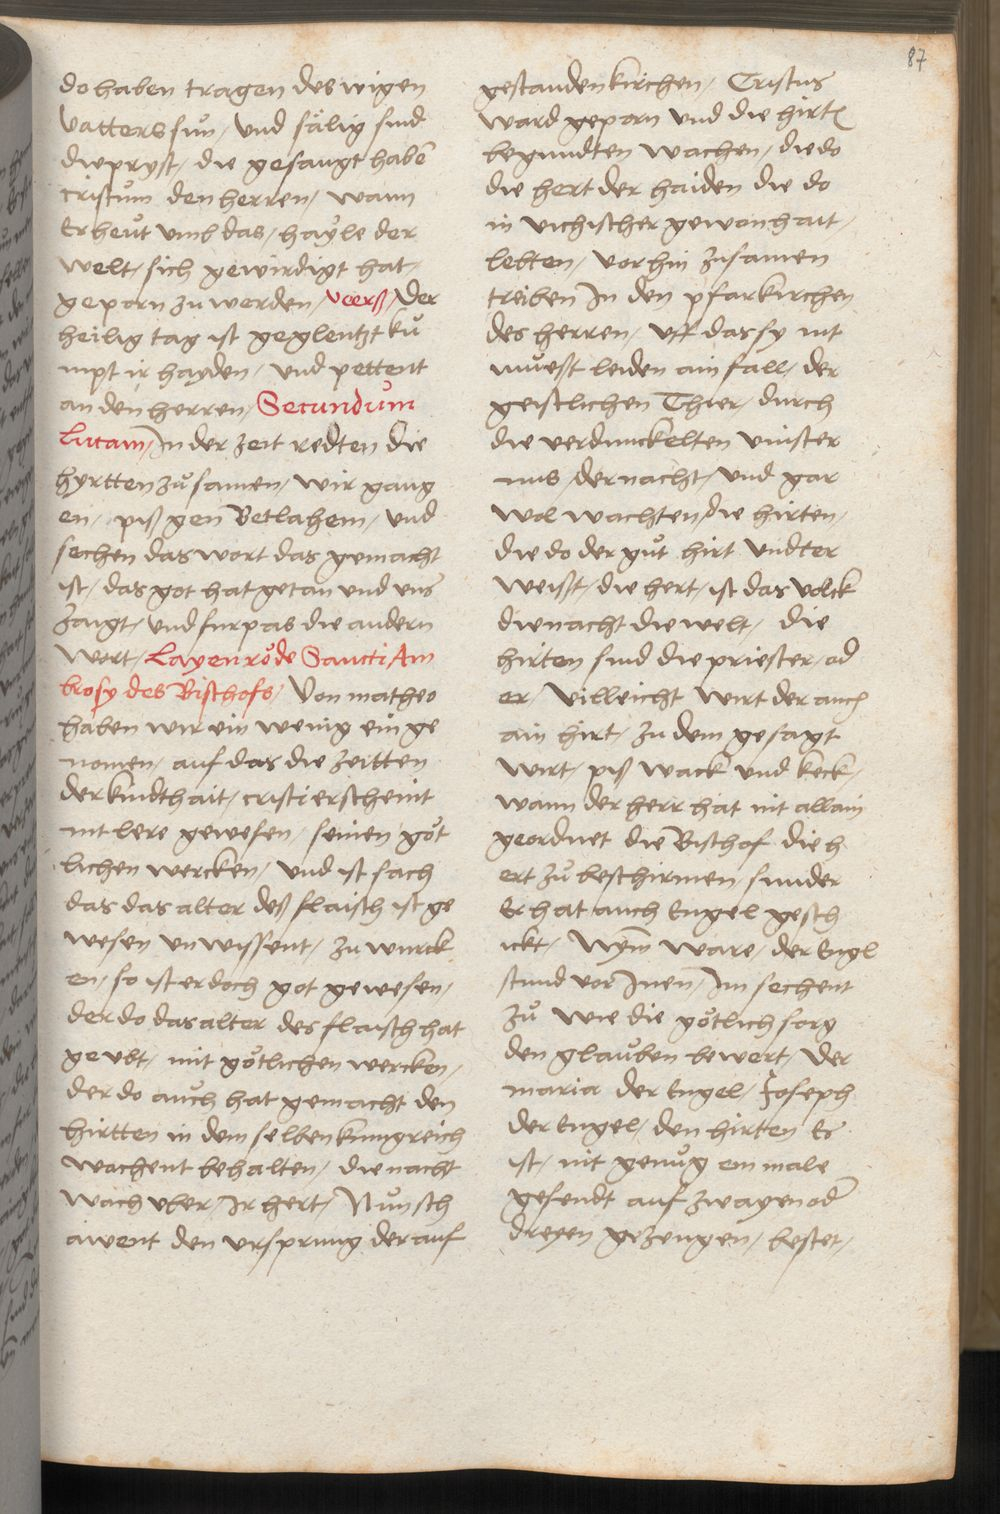 87
do haben tragen des wigen
vatters sůn, und sälig sind
die pryst, die gesaugt habē
cristům den herren, wann
Er heůt umb das, hayle der
welt, sich gewirdigt hat,
geporn zu werden, veerß, Der
heilig tag ist geglentzt ků
mpt ir hayden, und pettent
an den herren, Secundum
Lucam, In der zeit redten die
hyrtten zůsamen, wir gang
en, piß gen Betlahem, und
sechen das wort das gemacht
ist, das got hat getan und uns
zaigt, und furpas die andern
wort, Layen röde Sancti Am
brosy des Bischofs, Von matheo
haben wir ein wenig ein ge
nomen, auf das die zeitten
der kindthait, cristi erscheint
nit lere gewesen, seinen göt
lichen wercken, und ist sach
das das alter deß flaisch ist ge
wesen unwissent, zu wurck
en, so ist er doch got gewesen,
der do das alter des flaisch hat
geubt, mit götlichen wercken,
der do aůch hat gemacht den
hirtten in dem selben kunigreich
wachent behalten, die nacht
wach uber, Ir hert, Nůn sch
awent den ursprung der auf
gestanden kirchen, Cristus
ward geporn und die hirtn
begundten wachen, die do
die hert der haiden die do
in vichischer gewonhait,
lebten, vor hin zusamen
treiben In den pfarkirchen
des herren, uff das sy nit
můest leiden ain fall, der
geistlichen Thier, durch
die verdunckelten vinster
nus, der nacht, und gar
wol wachten die hirten,
die do der gůt hirt undter
weisst, die hert, ist das volck
die nacht die welt, die
hirten sind die priester, od
er, villeicht wirt der auch
ain hirt, zu dem gesagt
wirt, piß wack und keck,
wann der herr hat nit allain
geordnet die Bischof die h
ert zů beschirmen, sunder
Er hat auch Engel gesch
ickt, Nym ware, der Engl
stund vor Inen, Im sechent
zů wie die götlich sorg
den glaůben bewert, Der
maria der Engel, Joseph
der Engel, den hirten Es
ist, nit genůg ein male
gesendt auf zwayen odr
dreyen gezeugen, bestet,